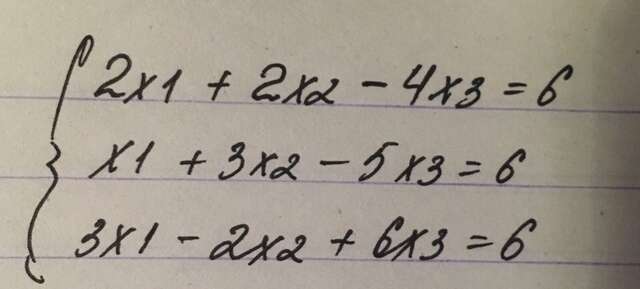 2x1 + 2x2 - 4x3 = 6
x1 + 3x2 - 5x3 = 6
3x1 - 2x2 + 6x3 = 6